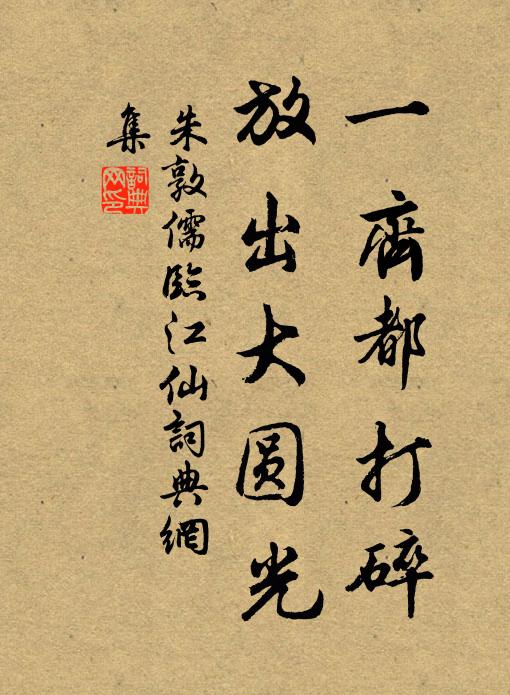 一齊都打碎
放出大圆光
朱敦儒臨江仙詞典網
集
詞典网印